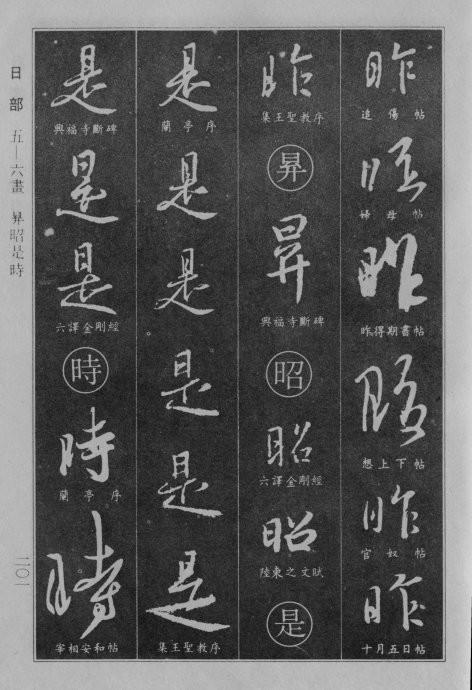 昨
追傷帖
昨
婦母帖
昨
昨得期書帖
昨
想上下帖
昨
官奴帖
昨
十月五日帖
昨
集王聖教序
昇
昇
興福寺斷碑
昭
昭
六譯金剛經
昭
陸柬之文賦
是
是
蘭亭序
是
是
是
是
是
集王聖教序
是
興福寺斷碑
是
是
六譯金剛經
時
時
蘭亭序
時
宰相安和帖
日部 五—六畫 昇昭是時
二〇一